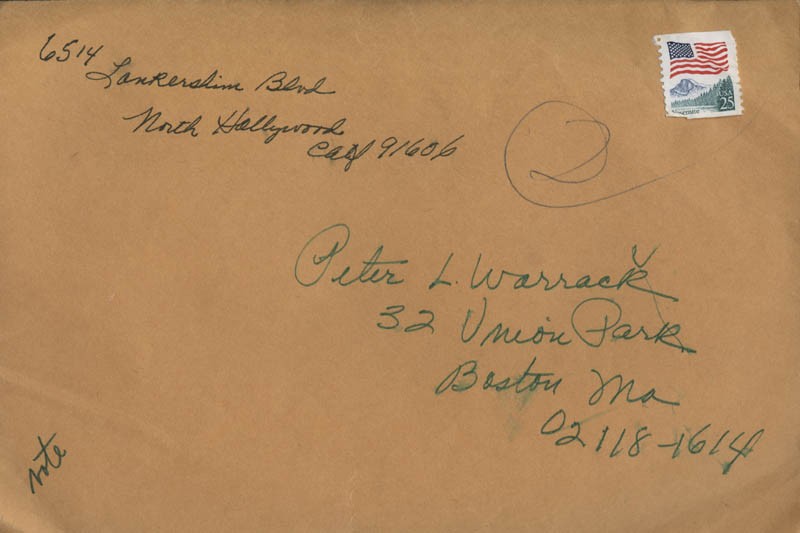 6514
Lankershim Blvd
North Hollywood
Calif 91606
USA
25
2
Peter L. Warrack
32 Union Park
Boston Ma
02118-1614
note